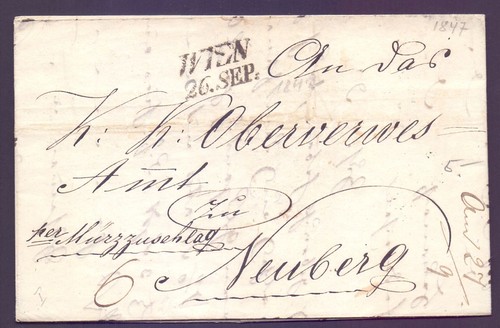 1847
WIEN
26. SEP.
1847
An das
K: K: Oberverwes=
Amt
zu
per Mürzzuschlag
Neuberg
6